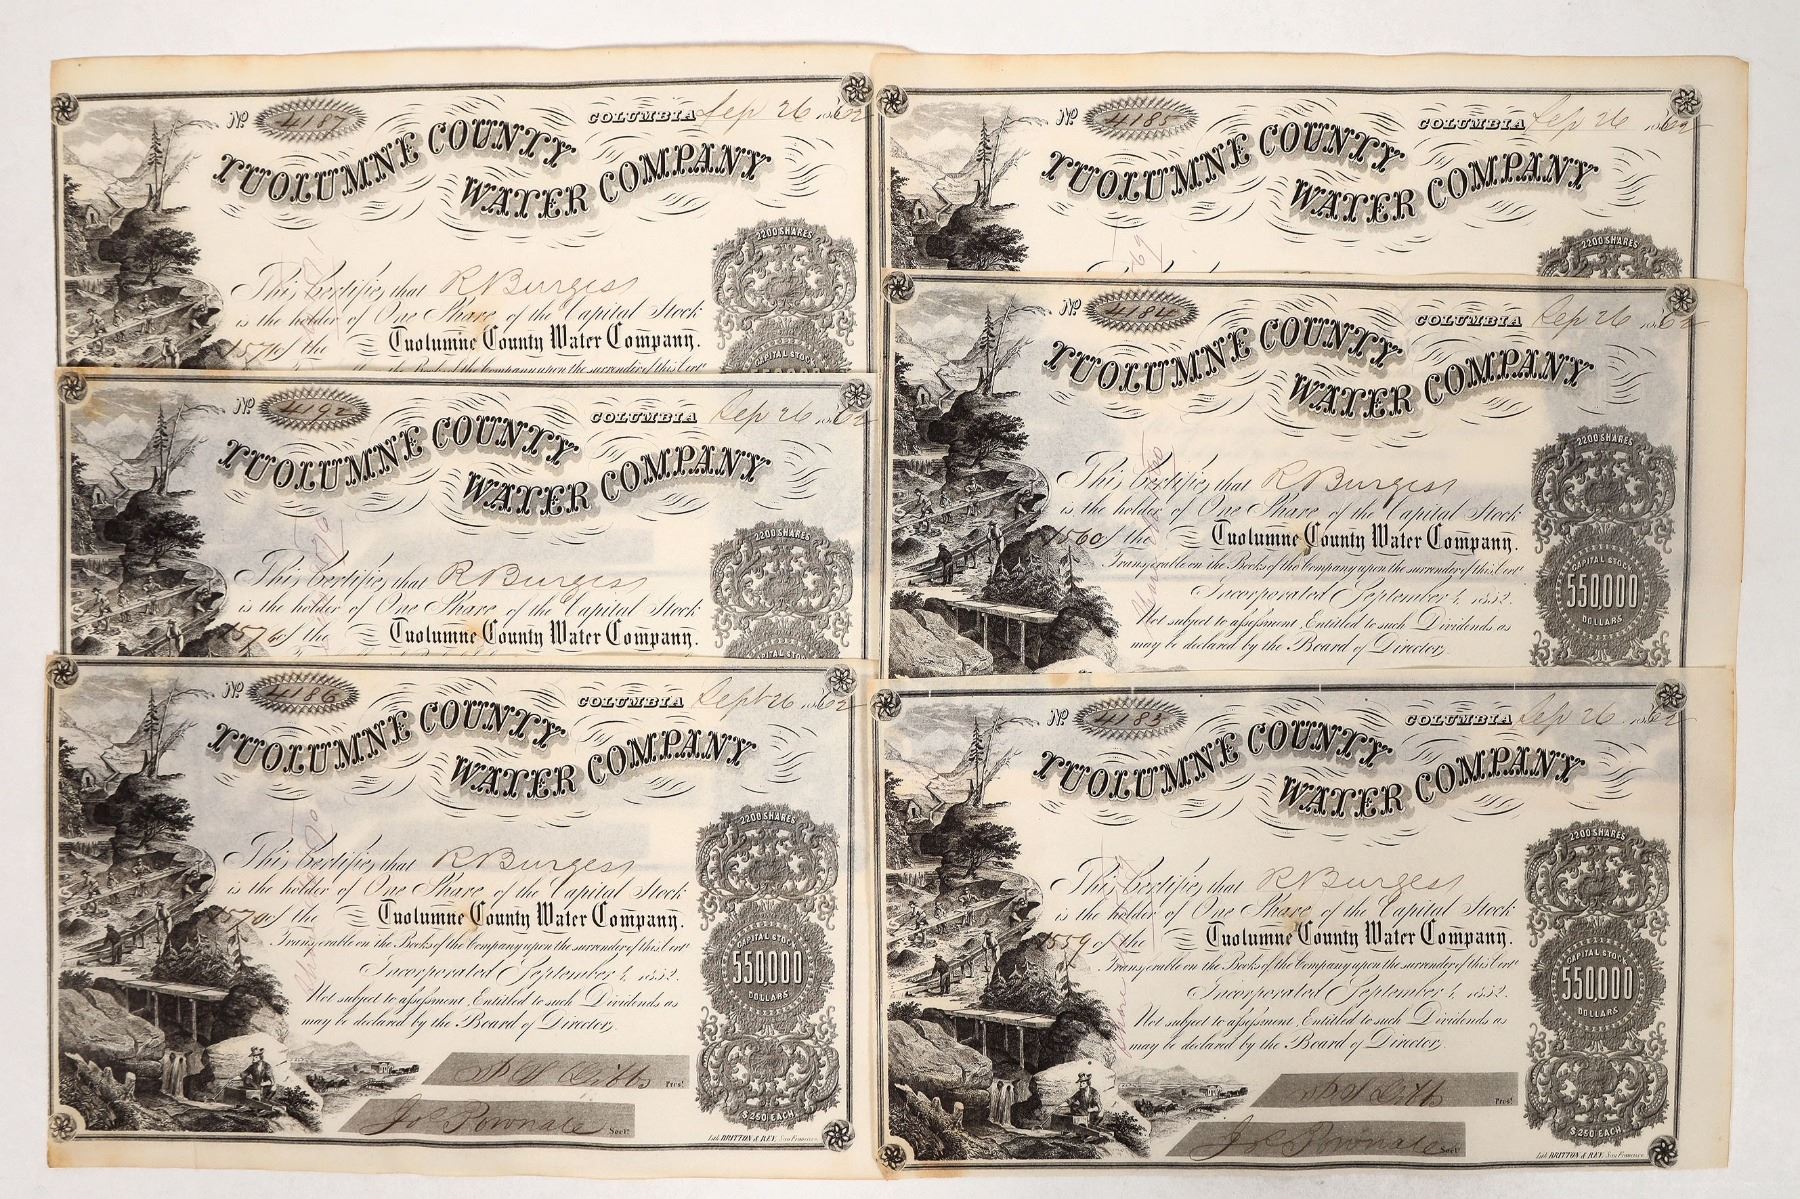 No 4187 COLUMBIA Sep 26 1862
TUOLUMNE COUNTY
WATER COMPANY
2200 SHARES
This Certifies that R Burgess
is the holder of One Share of the Capital Stock
1571 of the Tuolumne County Water Company.
CAPITAL STOCK
No 4192 COLUMBIA Sep 26 1862
TUOLUMNE COUNTY
WATER COMPANY
2200 SHARES
This Certifies that R Burgess
is the holder of One Share of the Capital Stock
of the Tuolumne County Water Company.
CAPITAL STOCK
No 4186 COLUMBIA Sept 26 1862
TUOLUMNE COUNTY
WATER COMPANY
2200 SHARES
This Certifies that R Burgess
is the holder of One Share of the Capital Stock
1570 of the Tuolumne County Water Company.
Transferable on the Books of the Company upon the surrender of this Certe
Incorporated September 4, 1852.
Not subject to assessment, Entitled to such Dividends as
may be declared by the Board of Directors.
CAPITAL STOCK
550,000
DOLLARS
$250 EACH.
Prest
Jos Pownall Secy
Lith. BRITTON & REY, San Francisco.
No 4185 COLUMBIA Sep 26 1862
TUOLUMNE COUNTY
WATER COMPANY
2200 SHARES
No 4184 COLUMBIA Sep 26 1862
TUOLUMNE COUNTY
WATER COMPANY
2200 SHARES
This Certifies that R Burgess
is the holder of One Share of the Capital Stock
1560 of the Tuolumne County Water Company.
Transferable on the Books of the Company upon the surrender of this Certe
Incorporated September 4, 1852.
Not subject to assessment, Entitled to such Dividends as
may be declared by the Board of Directors.
CAPITAL STOCK
550,000
DOLLARS
No 4183 COLUMBIA Sep 26 1862
TUOLUMNE COUNTY
WATER COMPANY
2200 SHARES
This Certifies that R Burgess
is the holder of One Share of the Capital Stock
1559 of the Tuolumne County Water Company.
Transferable on the Books of the Company upon the surrender of this Certe
Incorporated September 4, 1852.
Not subject to assessment, Entitled to such Dividends as
may be declared by the Board of Directors.
CAPITAL STOCK
550,000
DOLLARS
$250 EACH.
Prest
Jos Pownall Secy
Lith. BRITTON & REY, San Francisco.